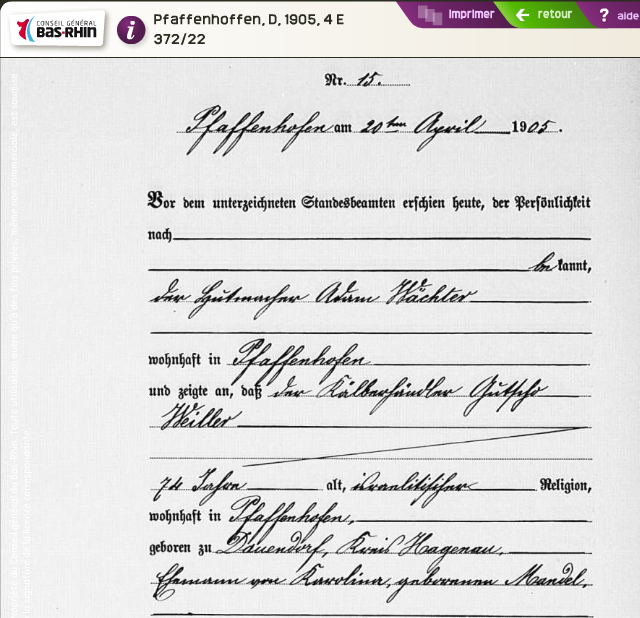 CONSEIL GÉNÉRAL
BAS-RHIN
Pfaffenhoffen, D, 1905, 4 E
372/22
imprimer
retour
aide
Nr. 15.
Pfaffenhofen am 20ten April 1905.
Vor dem unterzeichneten Standesbeamten erschien heute, der Persönlichkeit
nach
bekannt,
der Hutmacher Adam Wächter
wohnhaft in Pfaffenhofen
und zeigte an, daß der Kälberhändler Gutscho
Weiller
74 Jahre alt, israelitischer Religion,
wohnhaft in Pfaffenhofen,
geboren zu Dauendorf, Kreis Hagenau,
Ehemann von Karolina, geborenen Mandel,